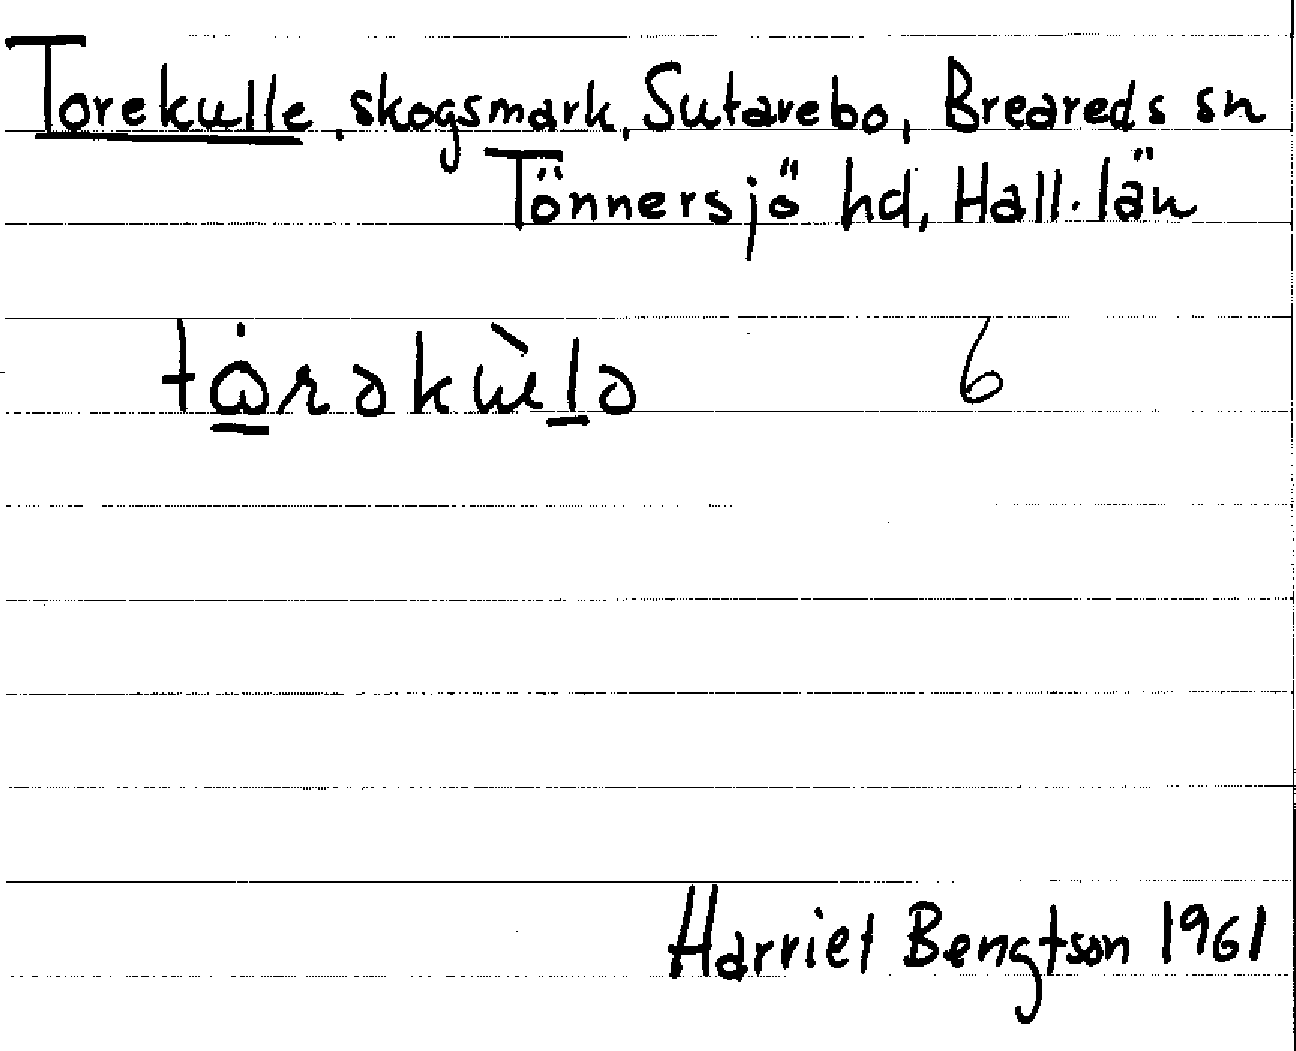 Torekulle, skogsmark, Sutarebo, Breareds sn
Tönnersjö hd, Hall. län
6
Harriet Bengtson 1961